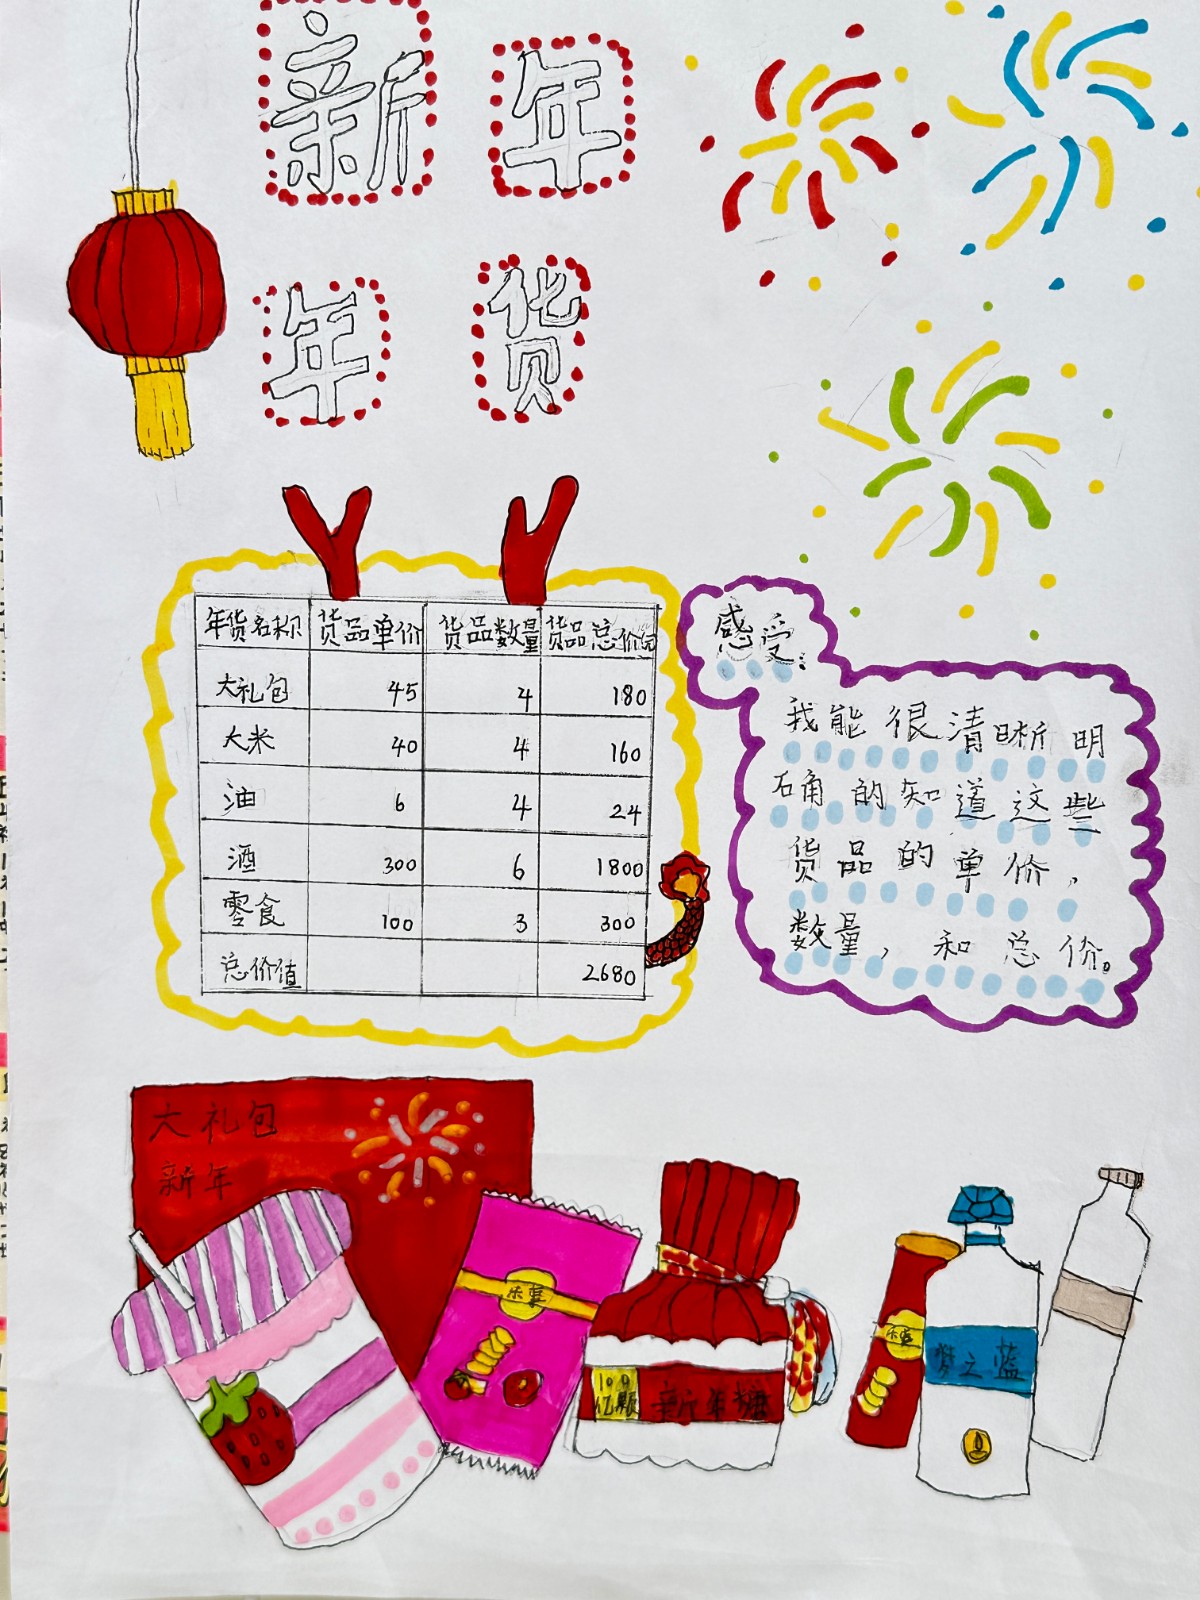 新年
年货
年货名称 货品单价 货品数量 货品总价值
大礼包 45 4 180
大米 40 4 160
油 6 4 24
酒 300 6 1800
零食 100 3 300
总价值 2680
感受:
我能很清晰明
确的知道这些
货品的单价,
数量,和总价。
大礼包
新年
乐事
100
亿颗
新年糖
乐事
梦之蓝